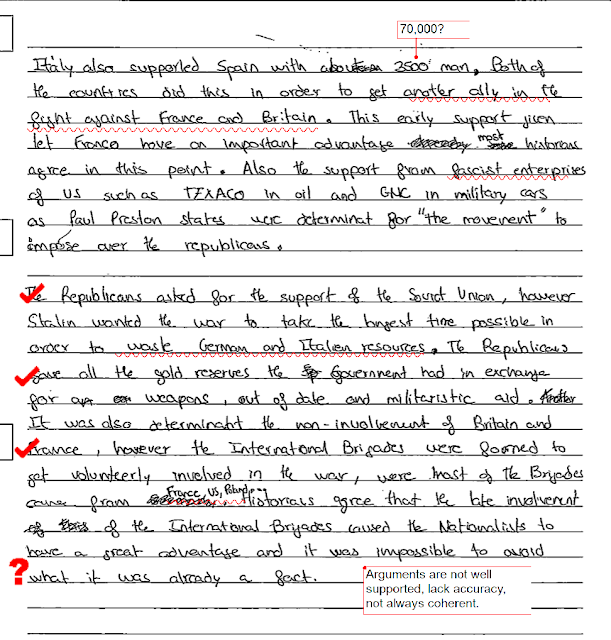 70,000?
Italy also supported Spain with about 3500 man, Both of
the countries did this in order to get another ally in the
fight against France and Britain. This early support given
let Franco have an important advantage most historians
agree in this point. Also the support from fascist enterprises
of US such as TEXACO in oil and GNC in military cars
as Paul Preston states were determinat for "the movement" to
impose over the republicans.
The Republicans asked for the support of the Soviet Union, however
Stalin wanted the war to take the longest time possible in
order to waste German and Italien resources. The Republicans
gave all the gold reserves the Government had in exchange
for weapons, out of date and militaristic aid.
It was also determinaht the non-involvement of Britain and
France, however the International Brigades were formed to
get volunteerly involved in the war, were most of the Brigades
came from France, US, Poland... Historians agree that the late involvement
of the International Brigades caused the Nationalists to
have a great advantage and it was impossible to avoid
? what it was already a fact.
Arguments are not well
supported, lack accuracy,
not always coherent.